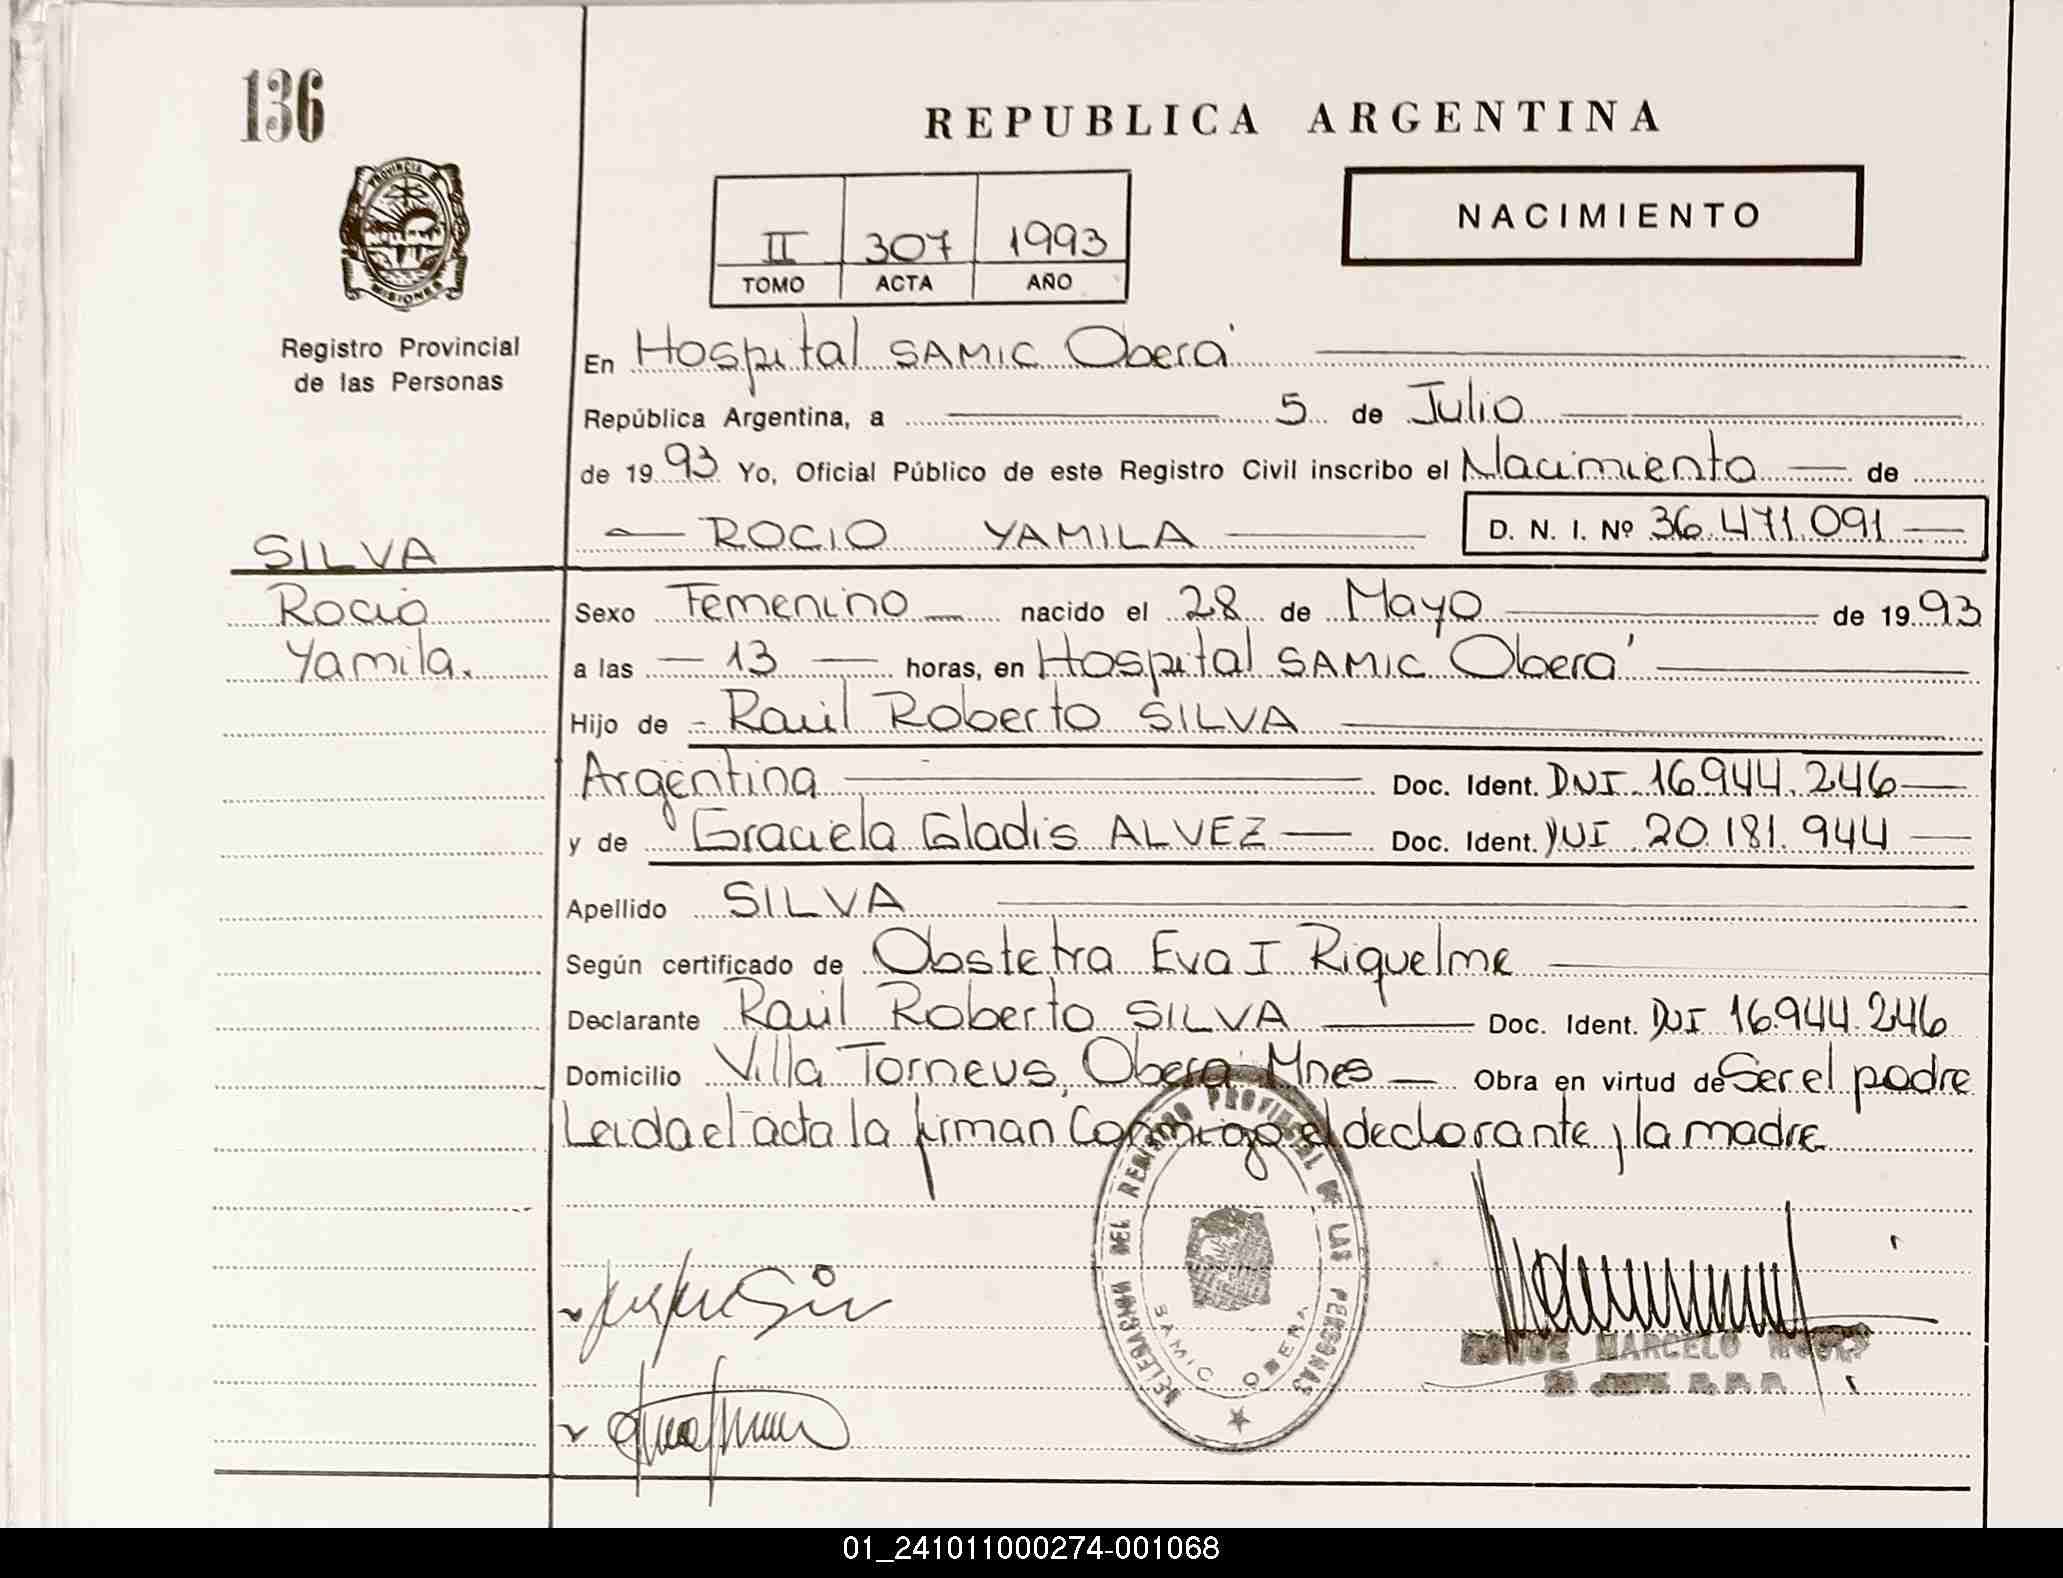 136
REPUBLICA ARGENTINA
PROVINCIA DE
MISIONES
NACIMIENTO
II 307 1993
TOMO ACTA AÑO
Registro Provincial
de las Personas
En Hospital SAMIC Oberá
República Argentina, a 5 de Julio
de 1993 Yo, Oficial Público de este Registro Civil inscribo el Nacimiento de
ROCIO YAMILA D. N. I. Nº 36.471.091
SILVA
Rocio
Yamila.
Sexo Femenino nacido el 28 de Mayo de 1993
a las 13 horas, en Hospital SAMIC Oberá
Hijo de Raúl Roberto SILVA
Argentina Doc. Ident. DNI 16.944.246
y de Graciela Gladis ALVEZ Doc. Ident. DNI 20.181.944
Apellido SILVA
Según certificado de Obstetra Eva I Riquelme
Declarante Raúl Roberto SILVA Doc. Ident. DNI 16.944.246
Domicilio Villa Torneus, Oberá Mnes Obra en virtud de Ser el padre
Leida el acta la firman Conmigo el declarante y la madre
DELEGACION DEL REGISTRO PROVINCIAL DE LAS PERSONAS
SAMIC OBERA
MARCELO
01_241011000274-001068